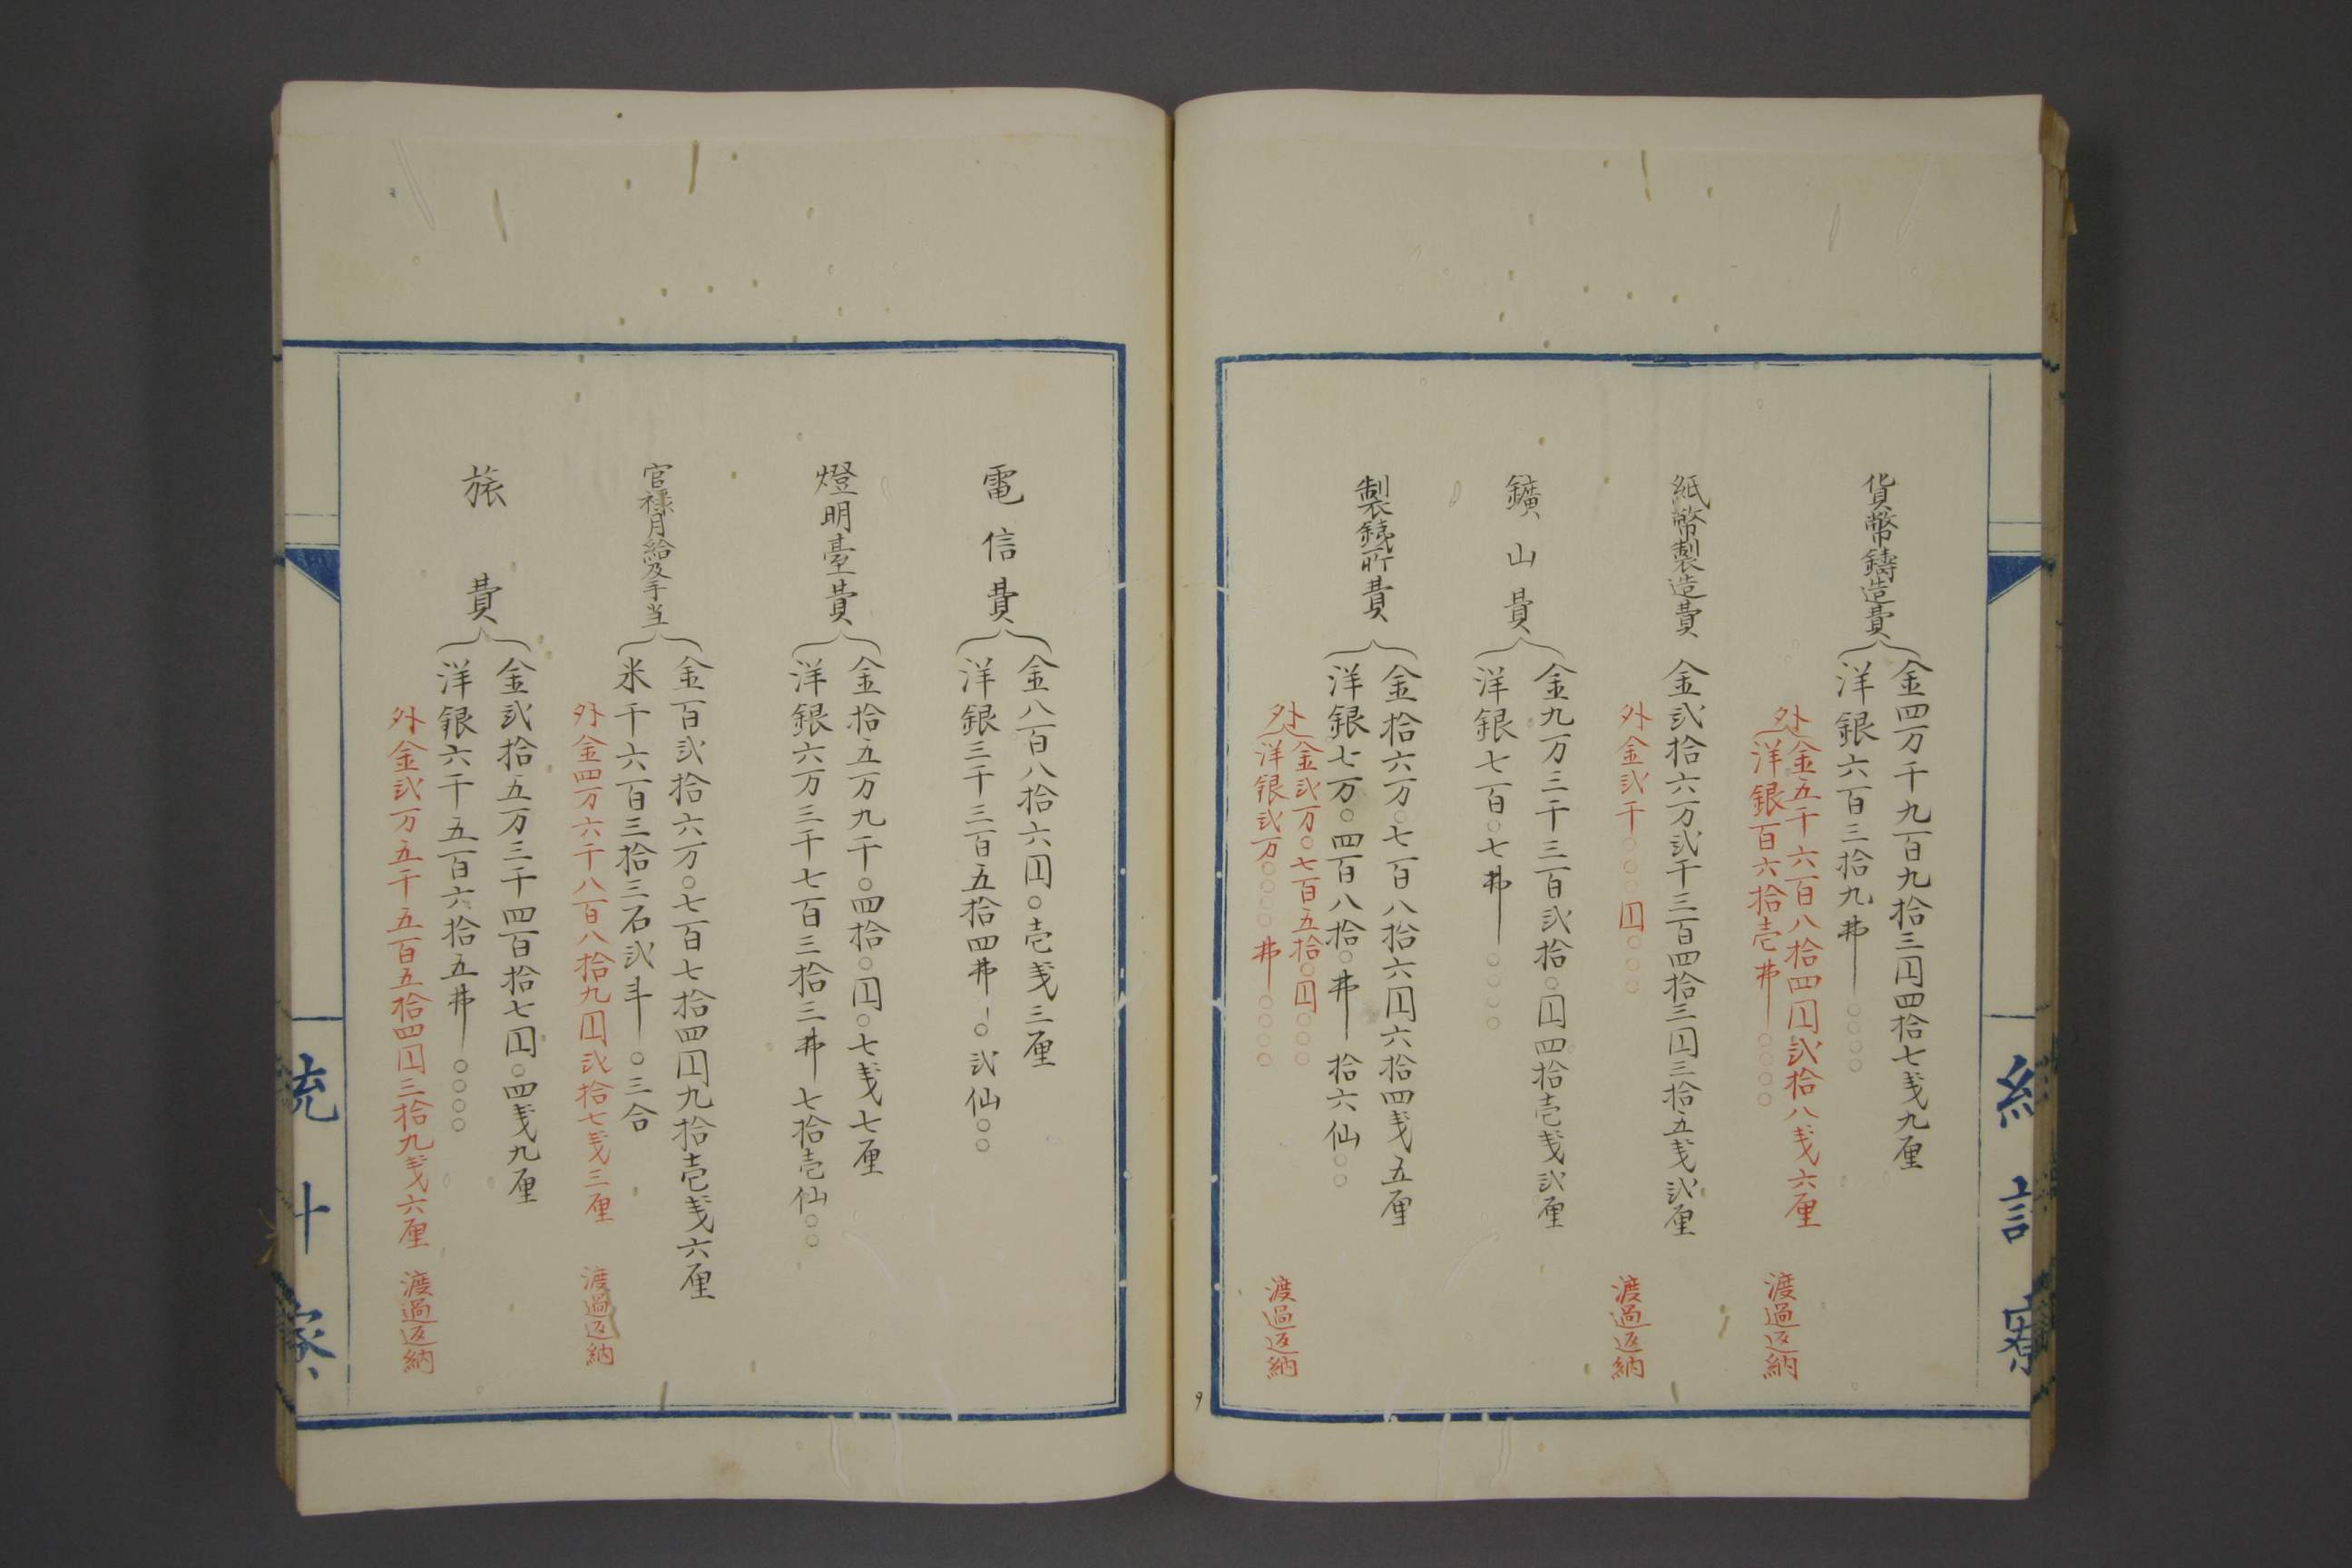 貨幣鋳造費
金四万千九百九拾三囗四拾七戔九厘
洋銀六百三拾九弗―〇〇〇〇
外
金五千六百八拾四囗弐拾八戔六厘
洋銀百六拾壱弗―〇〇〇〇
渡過返納
紙幣製造費
金弐拾六万弐千三百四拾三囗三拾五戔弐厘
外金弐千〇〇囗〇〇〇
渡過返納
鑛山費
金九万三千三百弐拾〇囗四拾壱戔弐厘
洋銀七百〇七弗―〇〇〇〇
製銕所費
金拾六万〇七百八拾六囗六拾四戔五厘
洋銀七万〇四百八拾〇弗―拾六仙〇〇
外
金弐万〇七百五拾〇囗〇〇〇
洋銀弐万〇〇〇〇弗―〇〇〇〇
渡過返納
9
電信費
金八百八拾六囗〇壱戔三厘
洋銀三千三百五拾四弗―〇弐仙〇〇
燈明臺費
金拾五万九千〇四拾〇囗〇七戔七厘
洋銀六万三千七百三拾三弗 七拾壱仙〇〇
官禄月給及手当
金百弐拾六万〇七百七拾四囗九拾壱戔六厘
米千六百三拾三石弐斗―〇三合
外金四万六千八百八拾九囗弐拾七戔三厘
渡過返納
旅費
金弐拾五万三千四百拾七囗〇四戔九厘
洋銀六千五百六拾五弗―〇〇〇〇
外金弐万五千五百五拾四囗三拾九戔六厘
渡過返納
統計寮